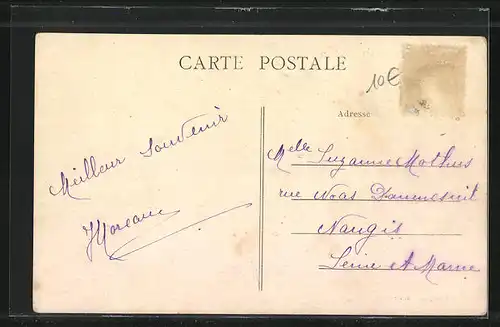 CARTE POSTALE
10€
Adresse
Meilleur Souvenir
Moreau
Melle Suzanne Mothus
rue
Nangis
Seine et Marne